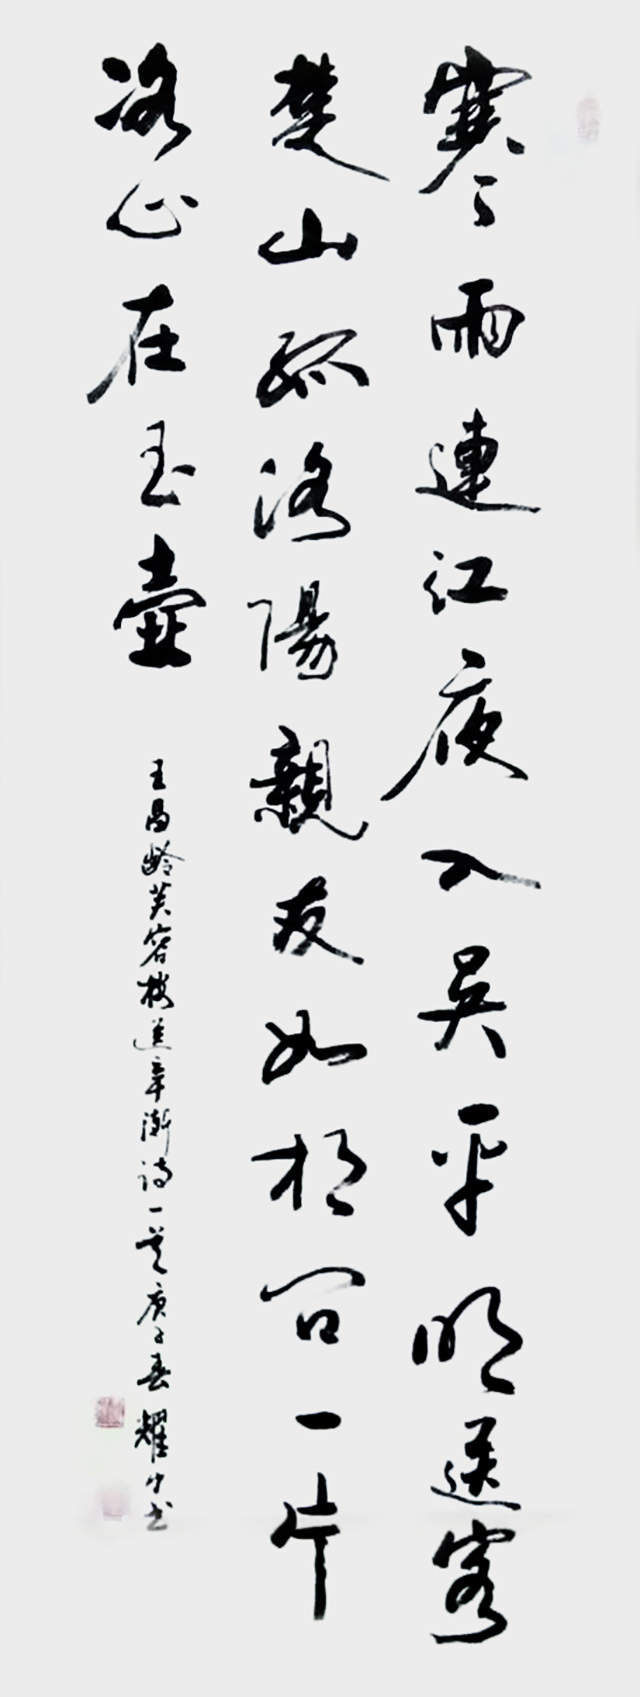 寒雨連江夜入吳平明送客
楚山孤洛陽親友如相問一片
冰心在玉壺
王昌齡芙蓉樓送辛漸詩一首庚子春耀中书